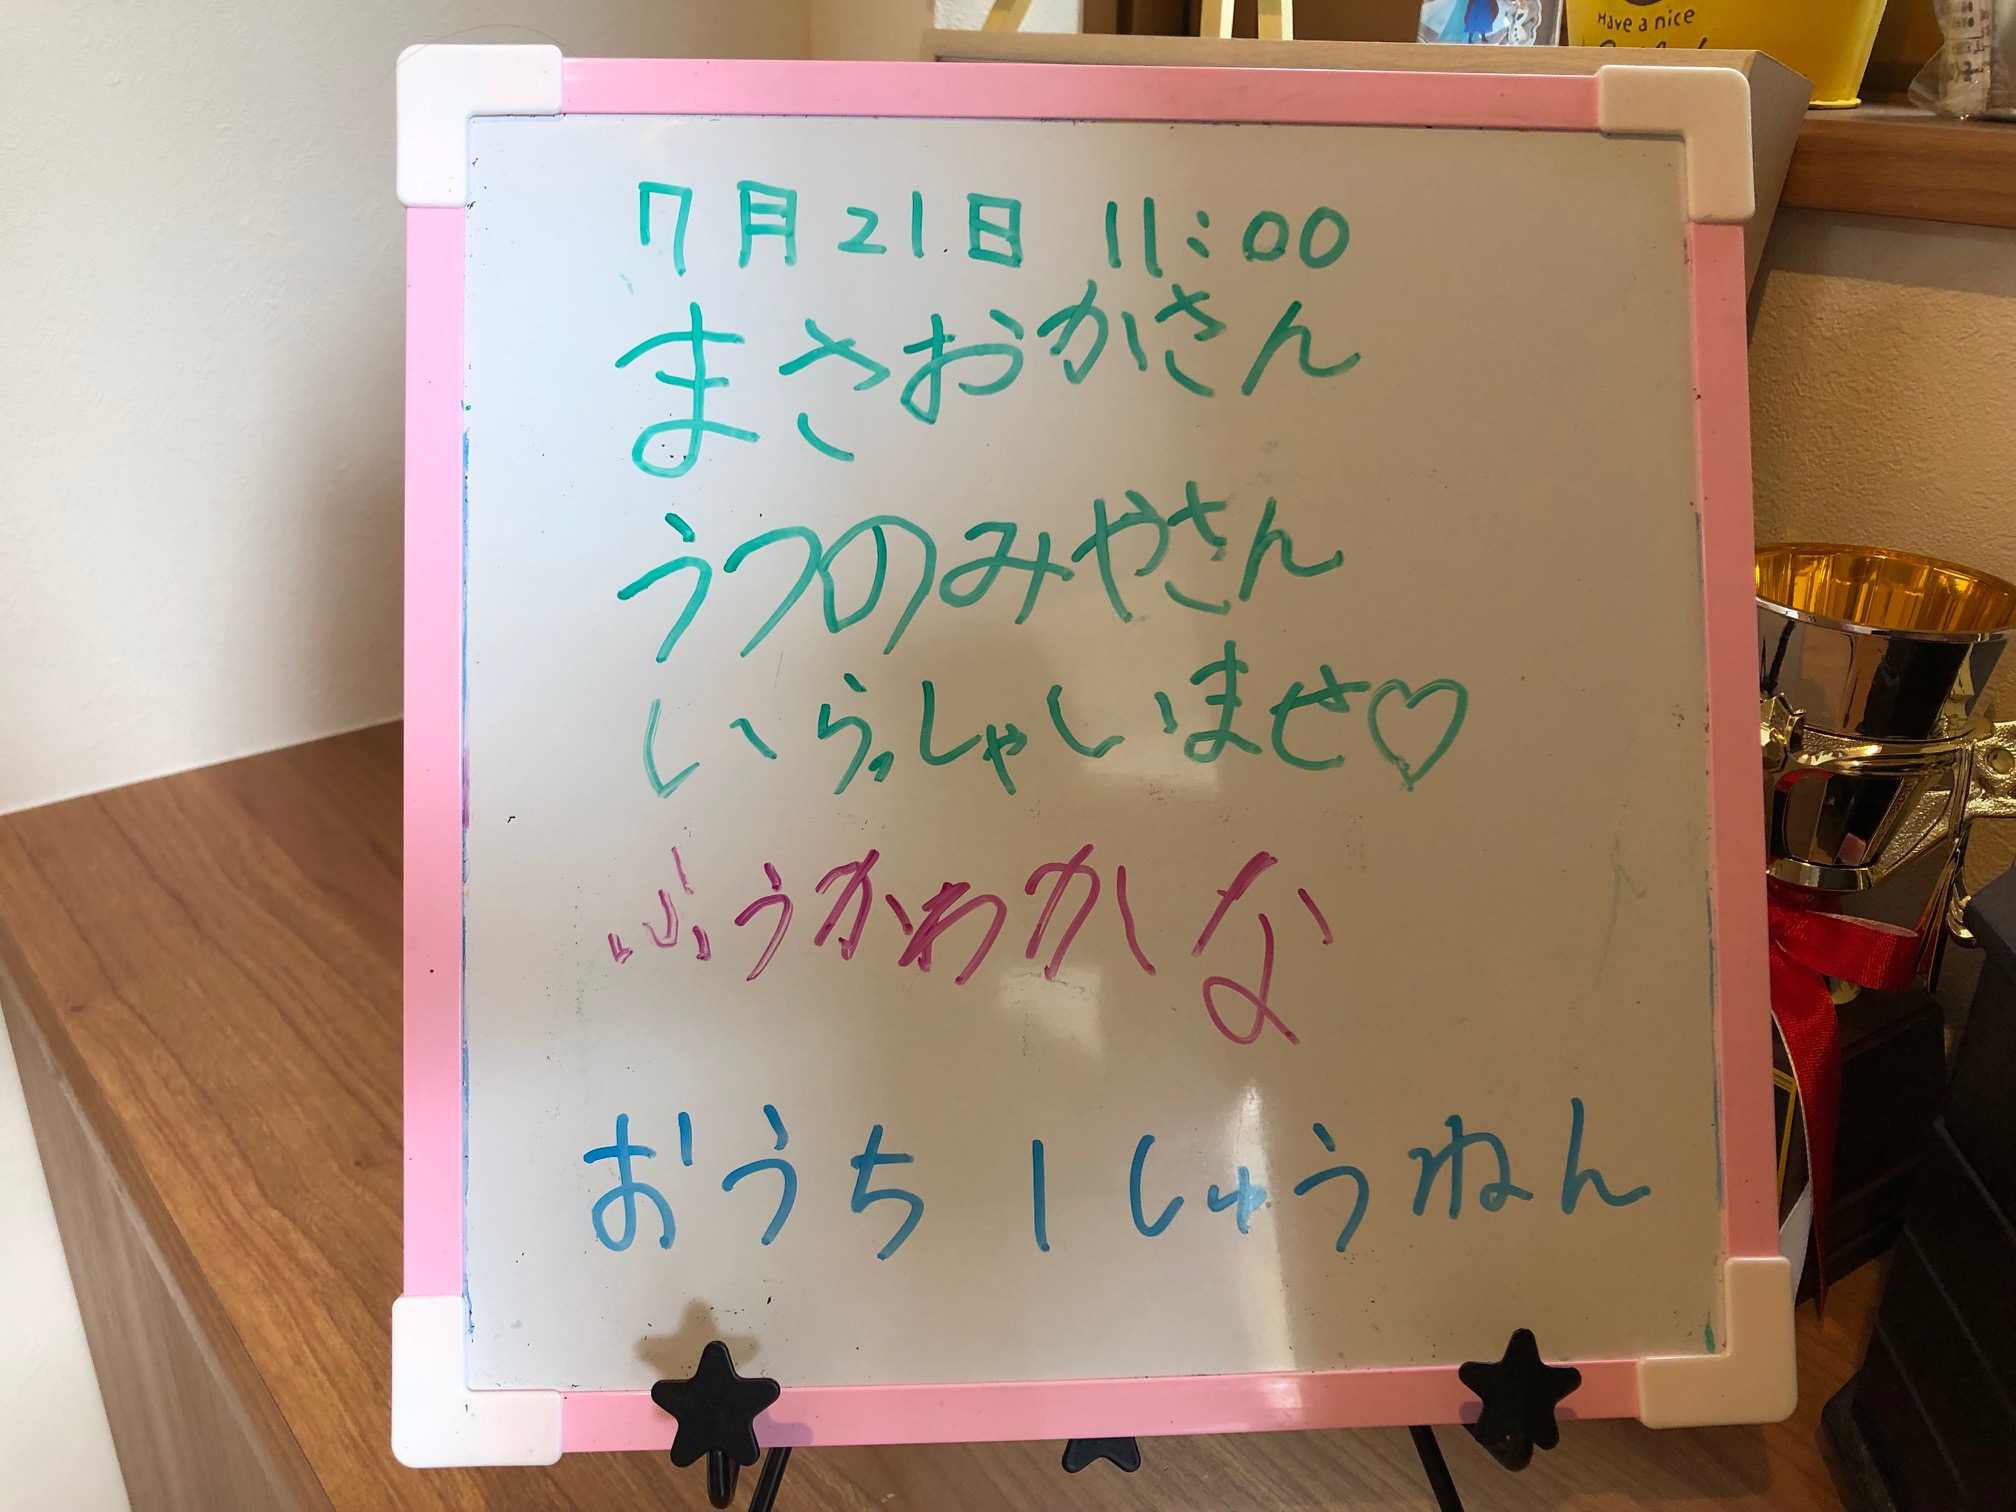 Have a nice
7月21日 11:00
まさおかさん
うつのみやさん
いらっしゃいませ♡
ふうかわかな
おうち1しゅうねん